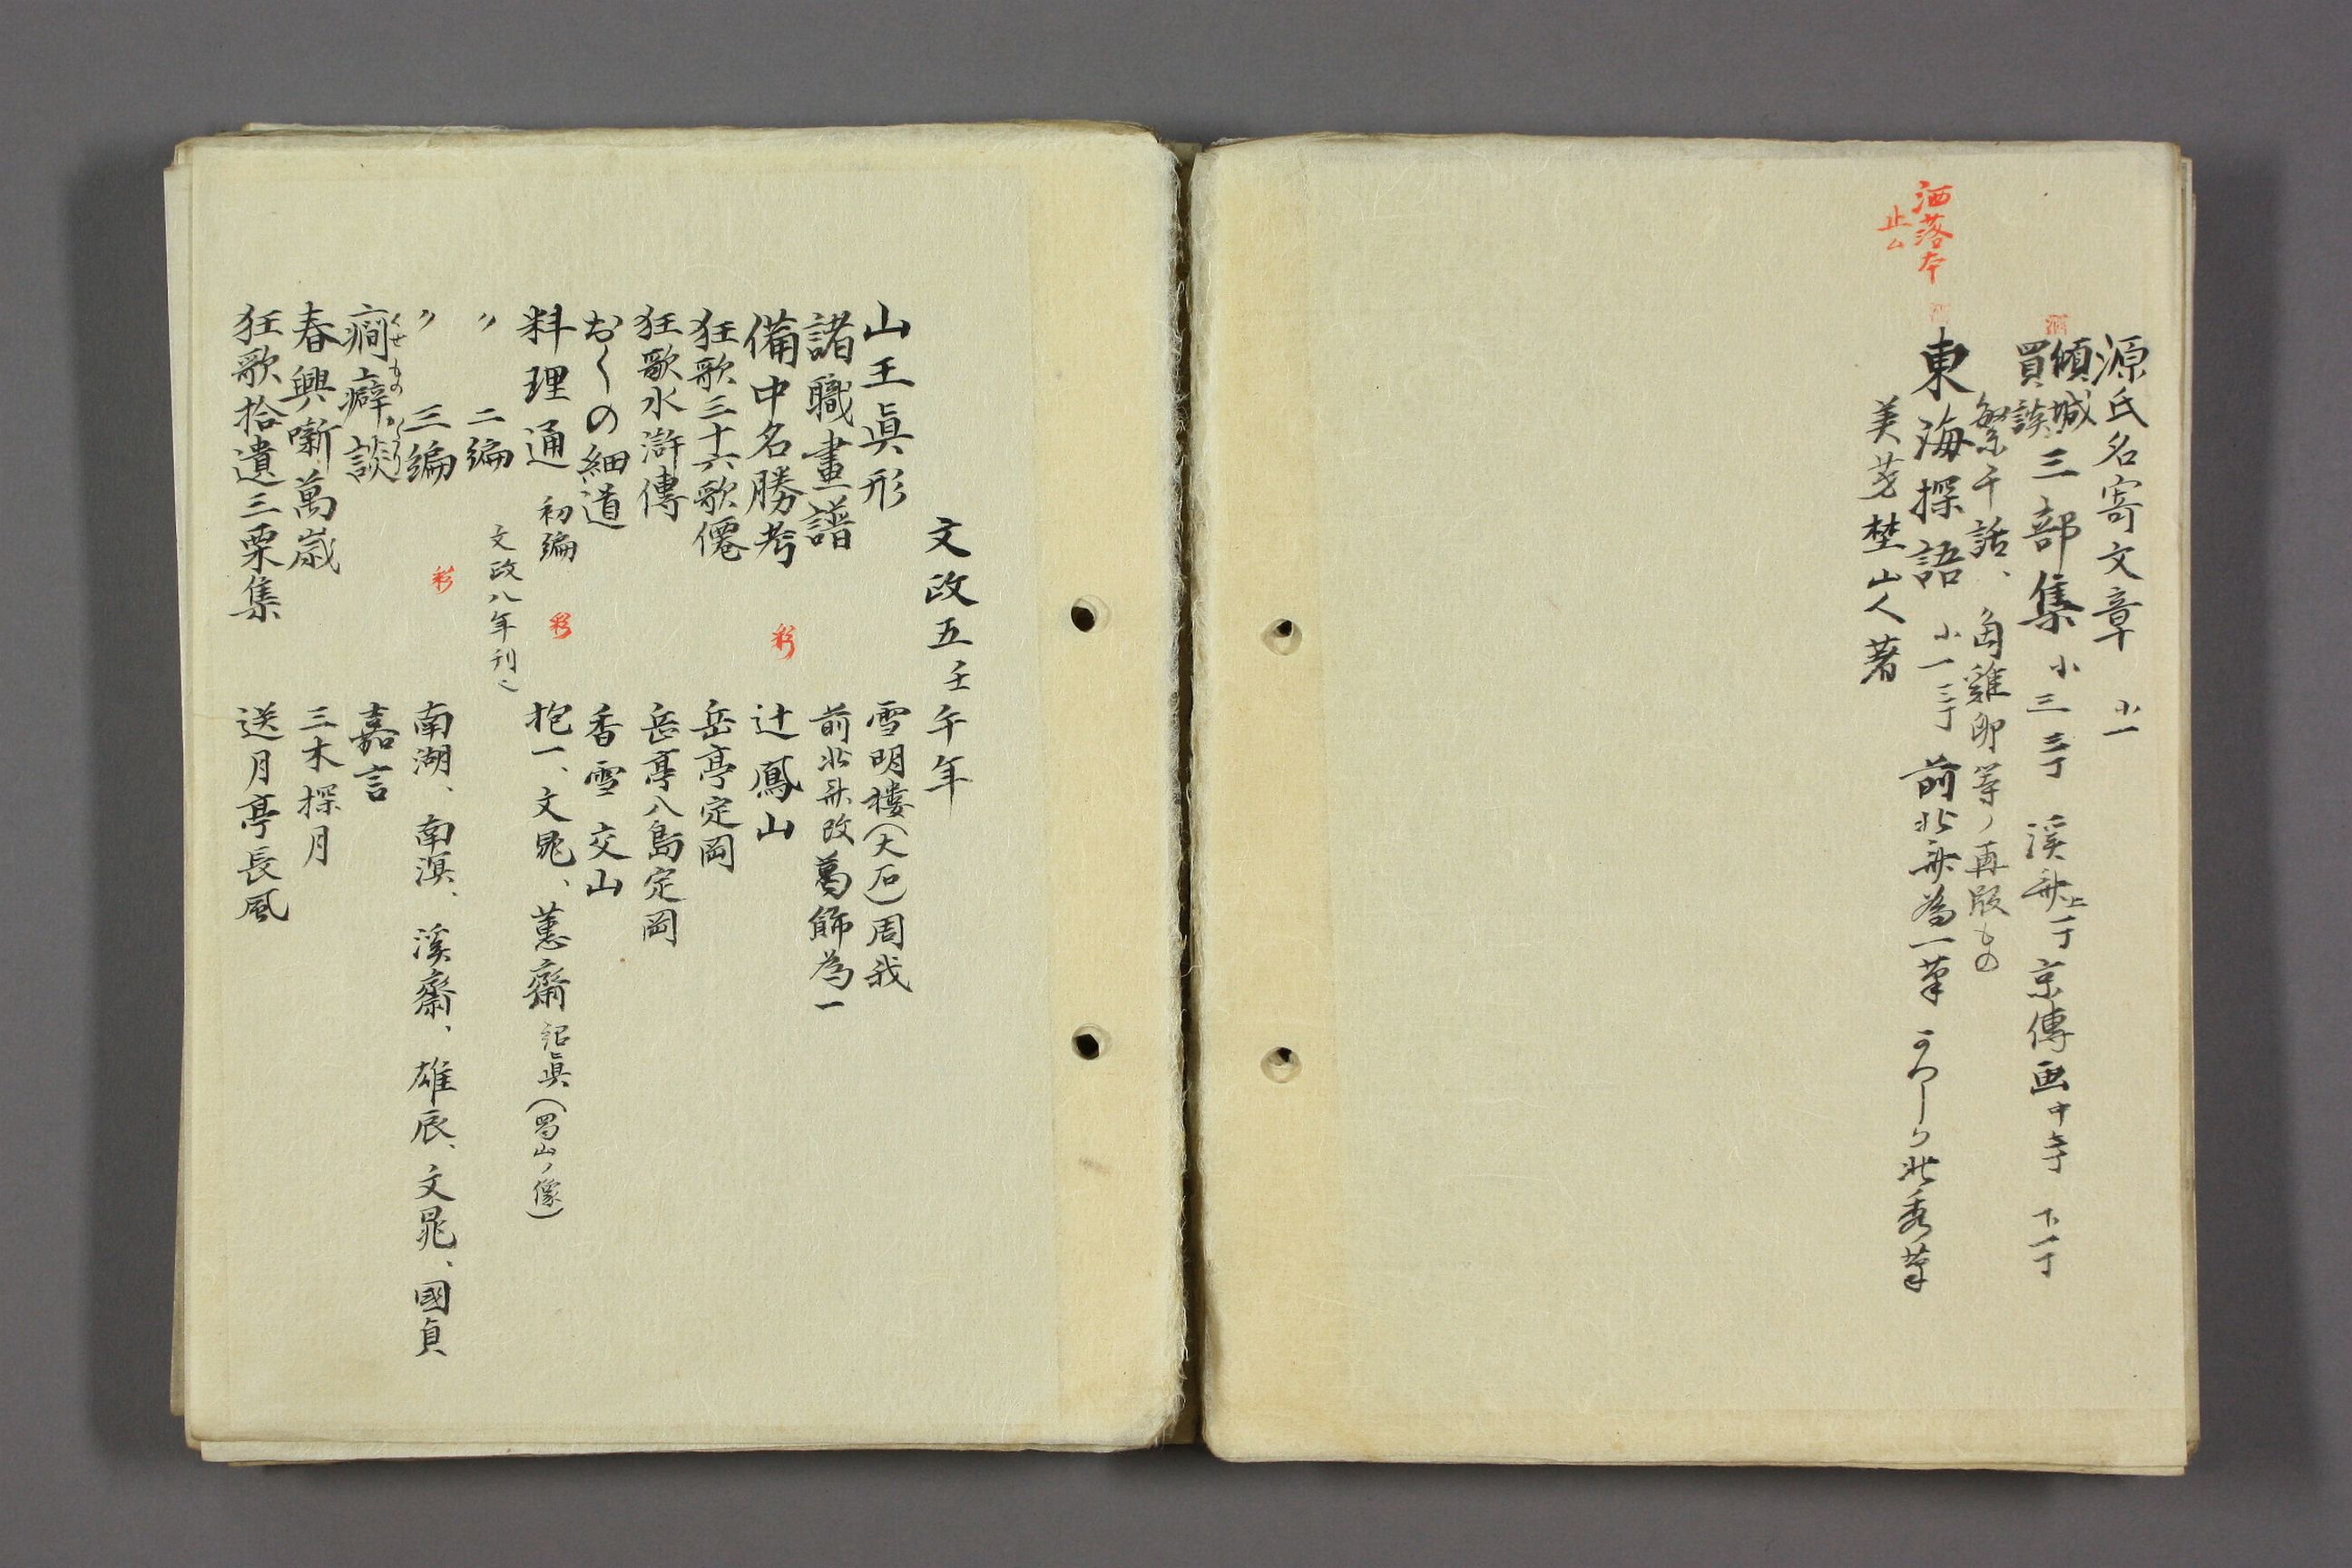 源氏名寄文章　小一
傾城買談三部集　小三　三丁　溪斎　上一丁　京傳画　中　下一丁
繁千話、角雞卵等ノ再版もの
洒落本
止ム
東海探語　小一　三丁　前北斎為一筆　北秀筆
美茗埜山人著
文政五壬午年
山王眞形　雪明樓（大石）周我
諸職畫譜　前北斎改葛飾為一
備中名勝考　彩　辻鳳山
狂歌三十六歌僊　岳亭定岡
狂歌水滸傳　岳亭八島定岡
おくの細道　香雪交山
料理通　初編　彩　抱一、文晁、蕙齋紹眞（蜀山ノ像）
〃　二編　文政八年刊ニ
〃　三編　彩　南湖、南溟、溪齋、雄辰、文晁、國貞
癇癖談　くせものかたり　嘉言
春興噺萬歳　三木探月
狂歌拾遺三栗集　送月亭長風